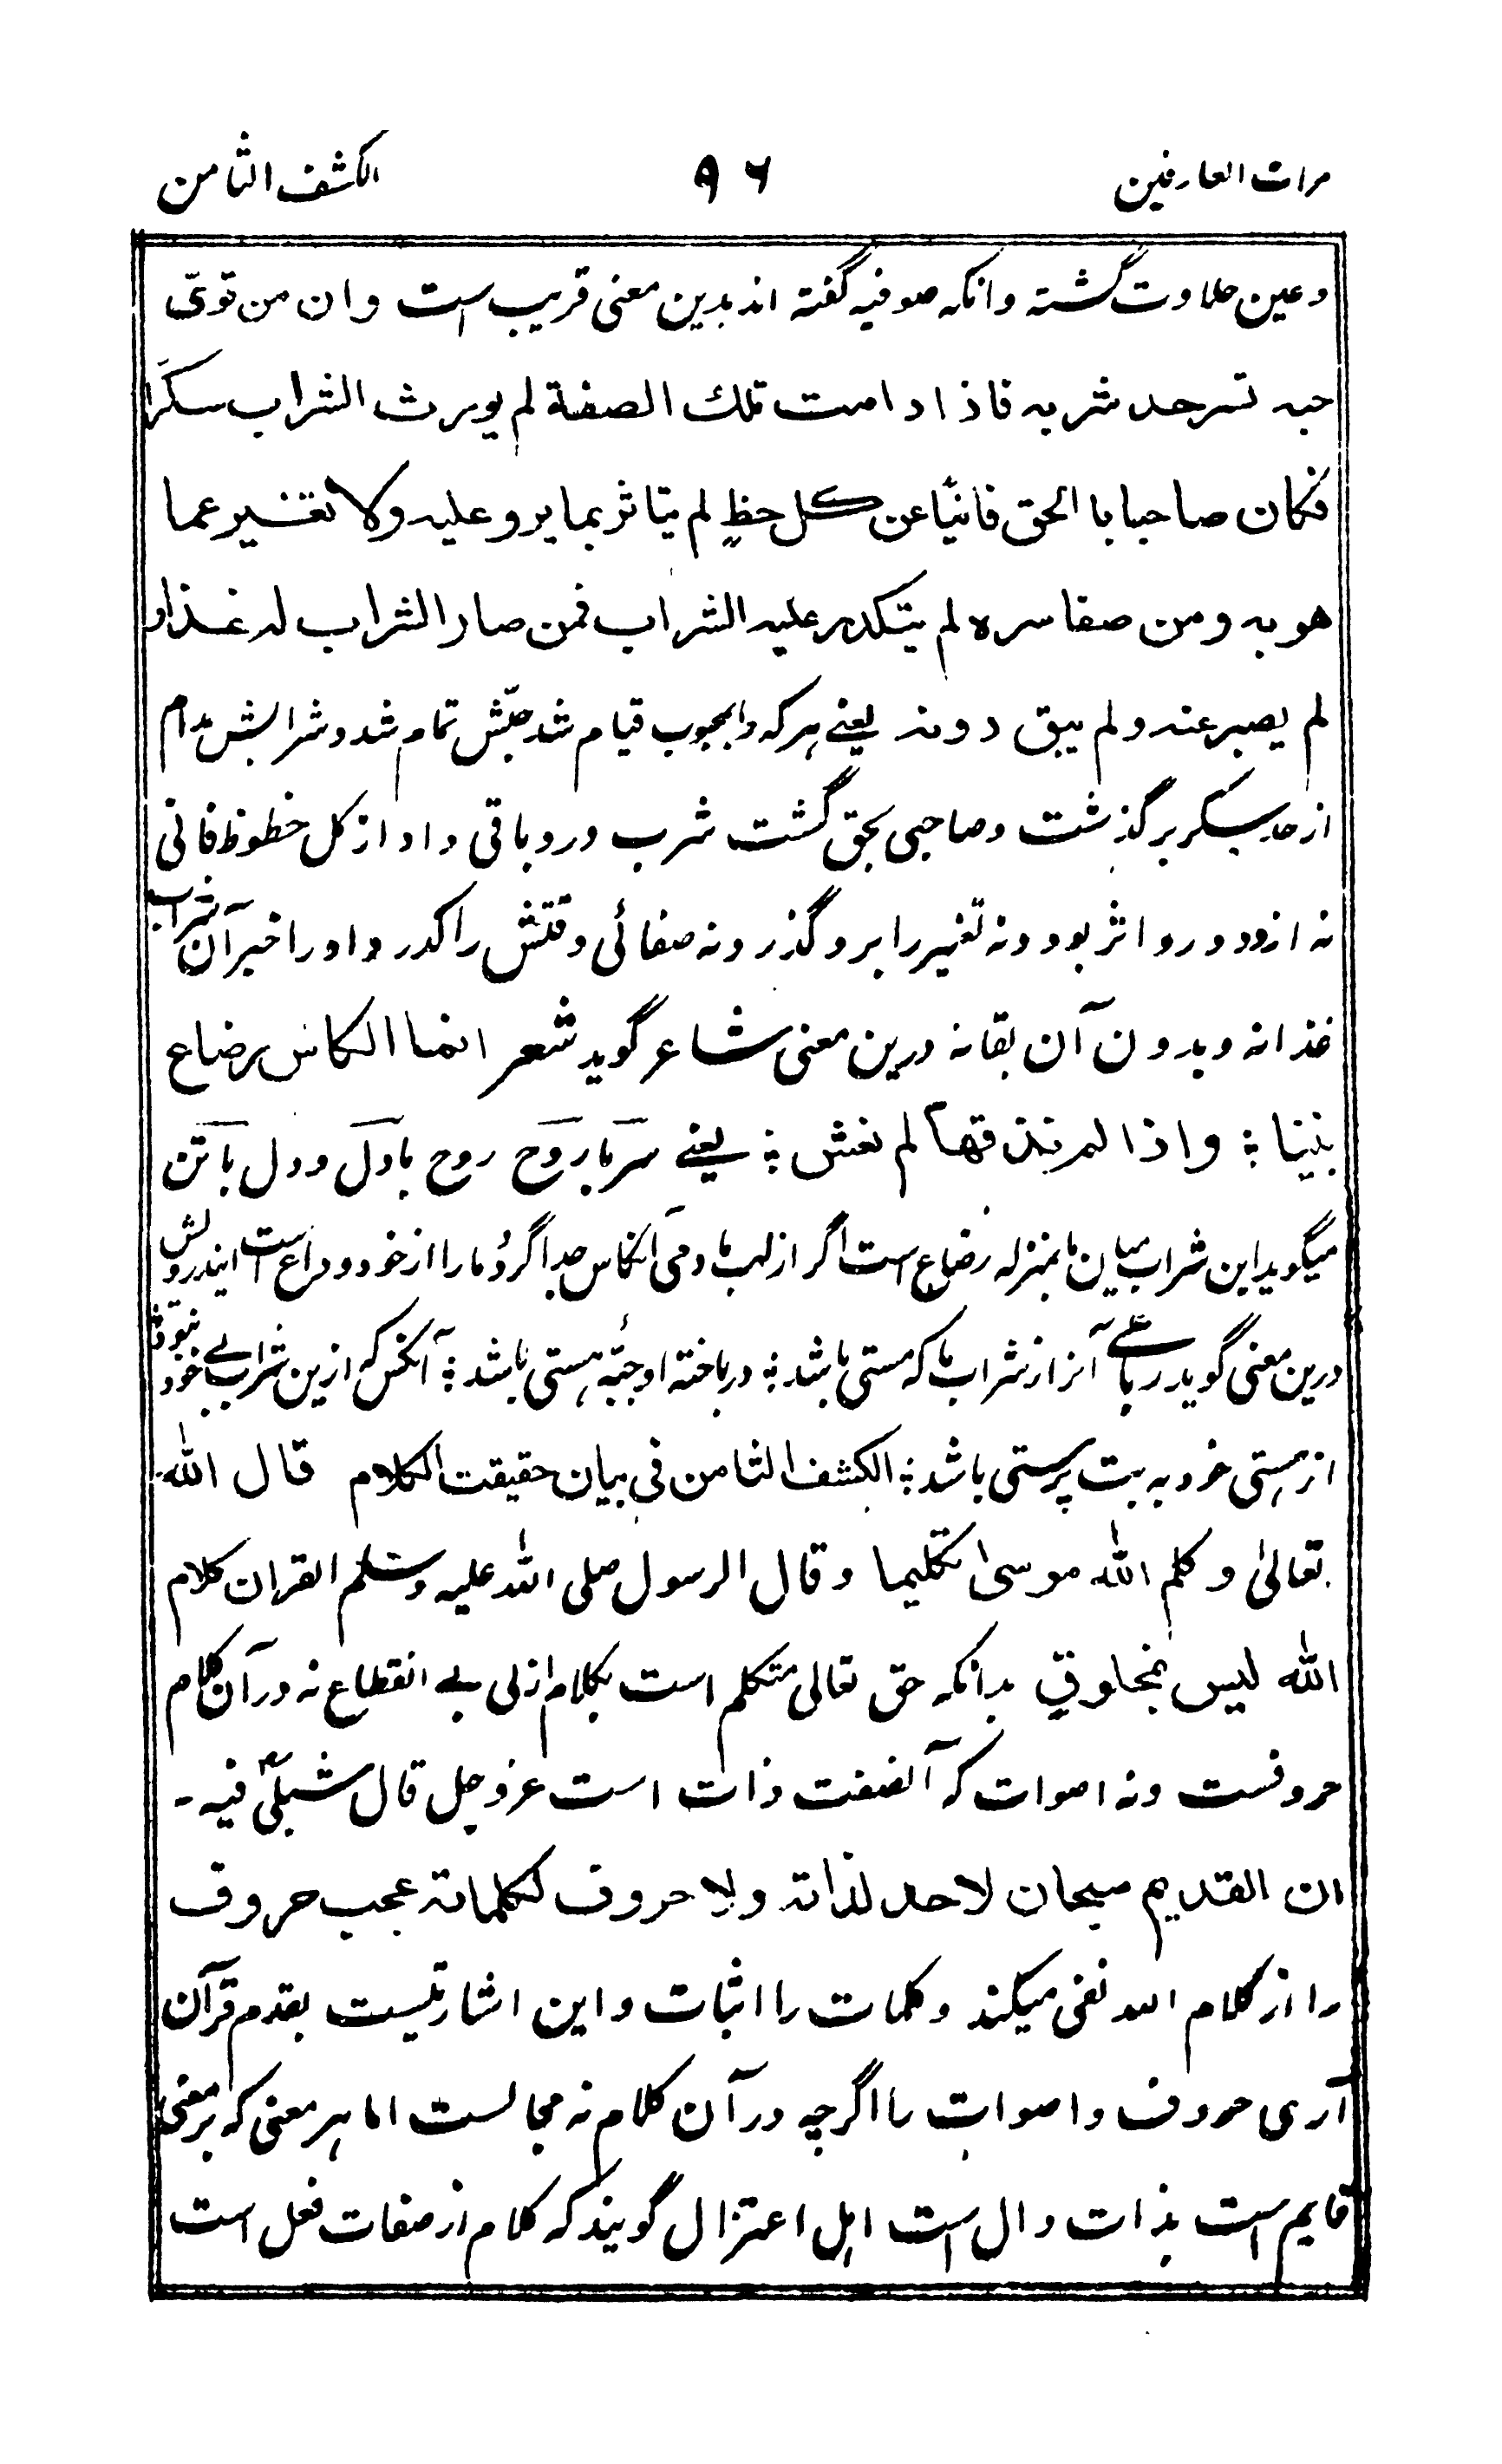 مرات العارفین ۹۶ الکشف الثامن
وعین حلاوت گشته وانکه صوفیه گفته اند بدین معنی قریب است وان من قویّ
حبه تسرحد شربه فاذا دامت تلك الصفة لم یورث الشراب سکرًا
فکان صاحبا با الحق فانیًا عن کل حظٍ لم یتاثر بما یرو علیه ولا تغیر عما
هو به ومن صفا سره لم یتکدر علیه الشراب فمن صار الشراب له غذاء
لم یصبر عنه ولم یبق دونه یعنے هر که را بمحبوب قیام شد حبّش تمام شد و شرابش مدام
از حد سکر برگذشت وصاحبی بحق گشت شرب درو باقی واو از کل حظوظ فانی
نه از ورود رو اثر بود ونه تغیر را برو گذر ونه صفائی وقتش را کدر واو را خبر آن شراب
غذا نه وبدون آن بقا نه درین معنی شاعر گوید شعر انما الکاس رضاع
بیننا ؛ واذا لم نذقها لم نعش ؛ یعنے سر با روح روح با دل ودل با تن
میگوید این شراب میان ما بمنزله رضاع است اگر از لب ما دمی آنکاس جدا گردد ما را از خود وداع است ایندرویش
درین معنی گوید رباعے آنرا ز شراب ما که مستی باشد ؛ درباخته او جبّه هستی باشد ؛ آنکس که ازین شراب بے خود نبود
از هستی خود به بت پرستی باشد ؛ الکشف الثامن فی بیان حقیقت الکلام قال الله
تعالیٰ وکلم الله موسیٰ تکلیما وقال الرسول صلی الله علیه وسلم القران کلام
الله لیس بمخلوقٍ بدانکه حق تعالی متکلم است بکلام ازلی بے انقطاع نه در آن کلام
حروفست ونه اصوات که آنصفت ذات است عز وجل قال شبلیؒ فیه -
ان القدیم سبحان لاحد لذاته ولا حروف لکلماته عجب حروف
را از کلام الله نفی میکند وکلمات را اثبات واین اشارتیست بقدم قرآن
آری حروف واصوات را اگرچه در آن کلام نه مجالست اما هر معنی که بر معنی
قایم است بذات دال است اهل اعتزال گویند که کلام از صفات فعل است